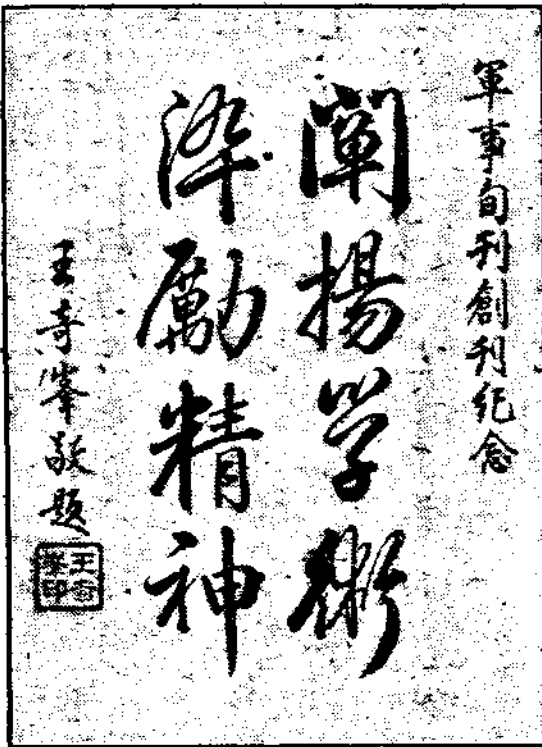 軍事旬刊創刊纪念
闡揚学術
淬勵精神
王奇峯敬題
王奇
峯印